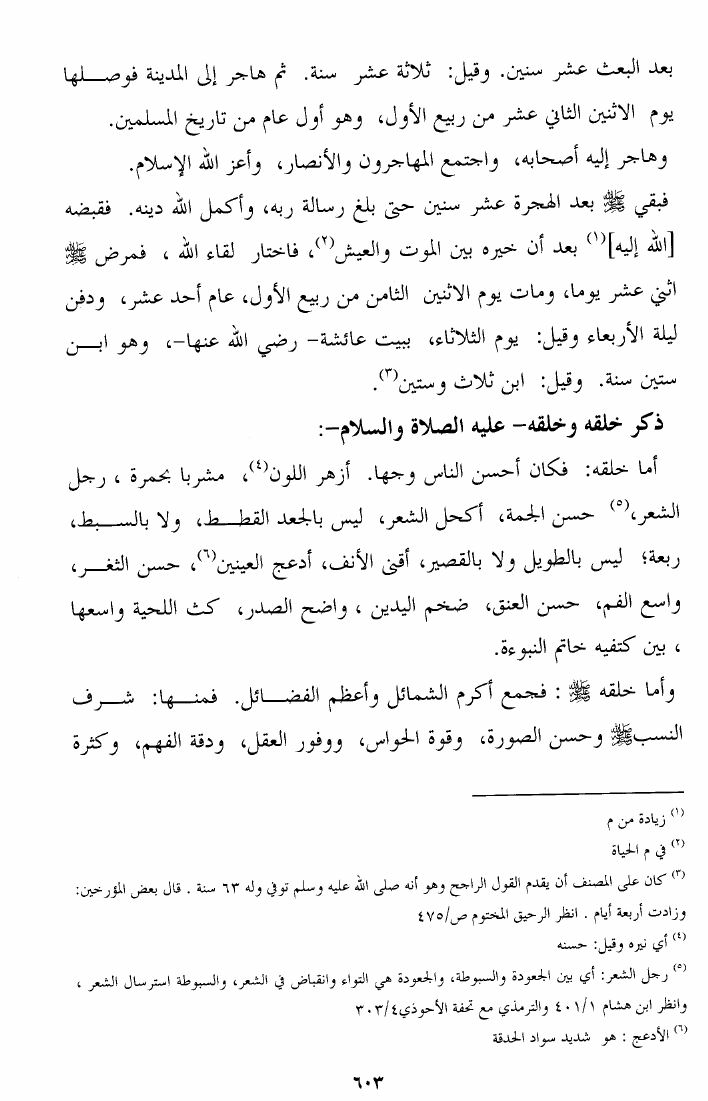 بعد البعث عشر سنين. وقيل: ثلاثة عشر سنة. ثم هاجر إلى المدينة فوصلها
يوم الاثنين الثاني عشر من ربيع الأول، وهو أول عام من تاريخ المسلمين.
وهاجر إليه أصحابه، واجتمع المهاجرون والأنصار، وأعز الله الإسلام.
فبقي ﷺ بعد الهجرة عشر سنين حتى بلغ رسالة ربه، وأكمل الله دينه. فقبضه
[الله إليه](١) بعد أن خيره بين الموت والعيش(٢)، فاختار لقاء الله ، فمرض ﷺ
اثني عشر يوما، ومات يوم الاثنين الثامن من ربيع الأول، عام أحد عشر، ودفن
ليلة الأربعاء وقيل: يوم الثلاثاء، ببيت عائشة- رضي الله عنها-، وهو ابن
ستين سنة. وقيل: ابن ثلاث وستين(٣).
ذكر خلقه وخلقه- عليه الصلاة والسلام-:
أما خلقه: فكان أحسن الناس وجها. أزهر اللون(٤)، مشربا بحمرة ، رجل
الشعر،(٥) حسن الجمة، أكحل الشعر، ليس بالجعد القطط، ولا بالسبط،
ربعة؛ ليس بالطويل ولا بالقصير، أقنى الأنف، أدعج العينين(٦)، حسن الثغر،
واسع الفم، حسن العنق، ضخم اليدين ، واضح الصدر، كث اللحية واسعها
، بين كتفيه خاتم النبوءة.
وأما خلقه ﷺ : فجمع أكرم الشمائل وأعظم الفضائل. فمنها: شرف
النسب ﷺ وحسن الصورة، وقوة الحواس، ووفور العقل، ودقة الفهم، وكثرة
(١) زيادة من م
(٢) في م الحياة
(٣) كان على المصنف أن يقدم القول الراجح وهو أنه صلى الله عليه وسلم توفي وله ٦٣ سنة . قال بعض المؤرخين:
وزادت أربعة أيام . انظر الرحيق المختوم ص/٤٧٥
(٤) أي نيره وقيل: حسنه
(٥) رجل الشعر: أي بين الجعودة والسبوطة، والجعودة هي التواء وانقباض في الشعر، والسبوطة استرسال الشعر ،
وانظر ابن هشام ٤٠١/١ والترمذي مع تحفة الأحوذي٣٠٣/٤
(٦) الأدعج : هو شديد سواد الحدقة
٦٠٣